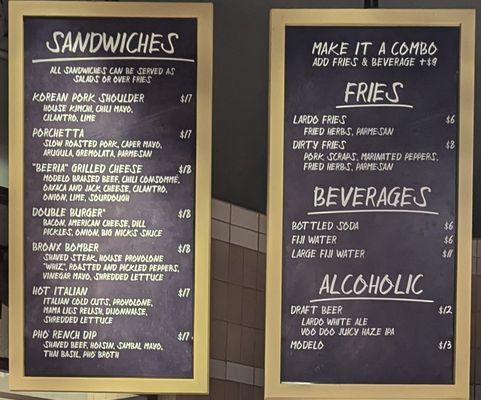 SANDWICHES
ALL SANDWICHES CAN BE SERVED AS
SALADS OR OVER FRIES
KOREAN PORK SHOULDER $17
HOUSE KIMCHI, CHILI MAYO,
CILANTRO, LIME
PORCHETTA $17
SLOW ROASTED PORK, CAPER MAYO,
ARUGULA, GREMOLATA, PARMESAN
"BEERIA" GRILLED CHEESE $18
MODELO BRAISED BEEF, CHILI CONSOMMÉ,
OAXACA AND JACK CHEESE, CILANTRO,
ONION, LIME, SOURDOUGH
DOUBLE BURGER* $18
BACON, AMERICAN CHEESE, DILL
PICKLES, ONION, BIG NICK'S SAUCE
BRONX BOMBER $18
SHAVED STEAK, HOUSE PROVOLONE
"WHIZ", ROASTED AND PICKLED PEPPERS,
VINEGAR MAYO, SHREDDED LETTUCE
HOT ITALIAN $17
ITALIAN COLD CUTS, PROVOLONE,
MAMA LIL'S RELISH, DIJONNAISE,
SHREDDED LETTUCE
PHO RENCH DIP $17
SHAVED BEEF, HOISIN, SAMBAL MAYO,
THAI BASIL, PHO BROTH
MAKE IT A COMBO
ADD FRIES & BEVERAGE +$9
FRIES
LARDO FRIES $6
FRIED HERBS, PARMESAN
DIRTY FRIES $8
PORK SCRAPS, MARINATED PEPPERS,
FRIED HERBS, PARMESAN
BEVERAGES
BOTTLED SODA $6
FIJI WATER $6
LARGE FIJI WATER $11
ALCOHOLIC
DRAFT BEER $12
LARDO WHITE ALE
VOO DOO JUICY HAZE IPA
MODELO $13